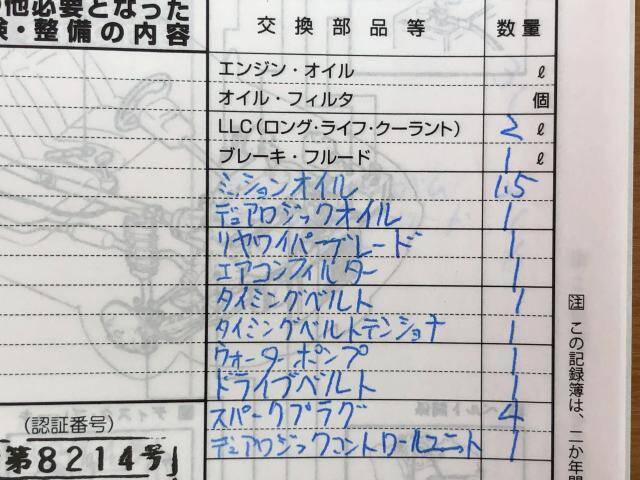 の他必要となった
検・整備の内容
交換部品等 数量
エンジン・オイル ℓ
オイル・フィルタ 個
LLC(ロング・ライフ・クーラント) 2 ℓ
ブレーキ・フルード 1 ℓ
ミッションオイル 1.5
デュアロジックオイル 1
リヤワイパーブレード 1
エアコンフィルター 1
タイミングベルト 1
タイミングベルトテンショナ 1
ウォーターポンプ 1
ドライブベルト 1
スパークプラグ 4
デュアロジックコントロールユニット 1
(認証番号)
第8214号
注 この記録簿は、二か年間